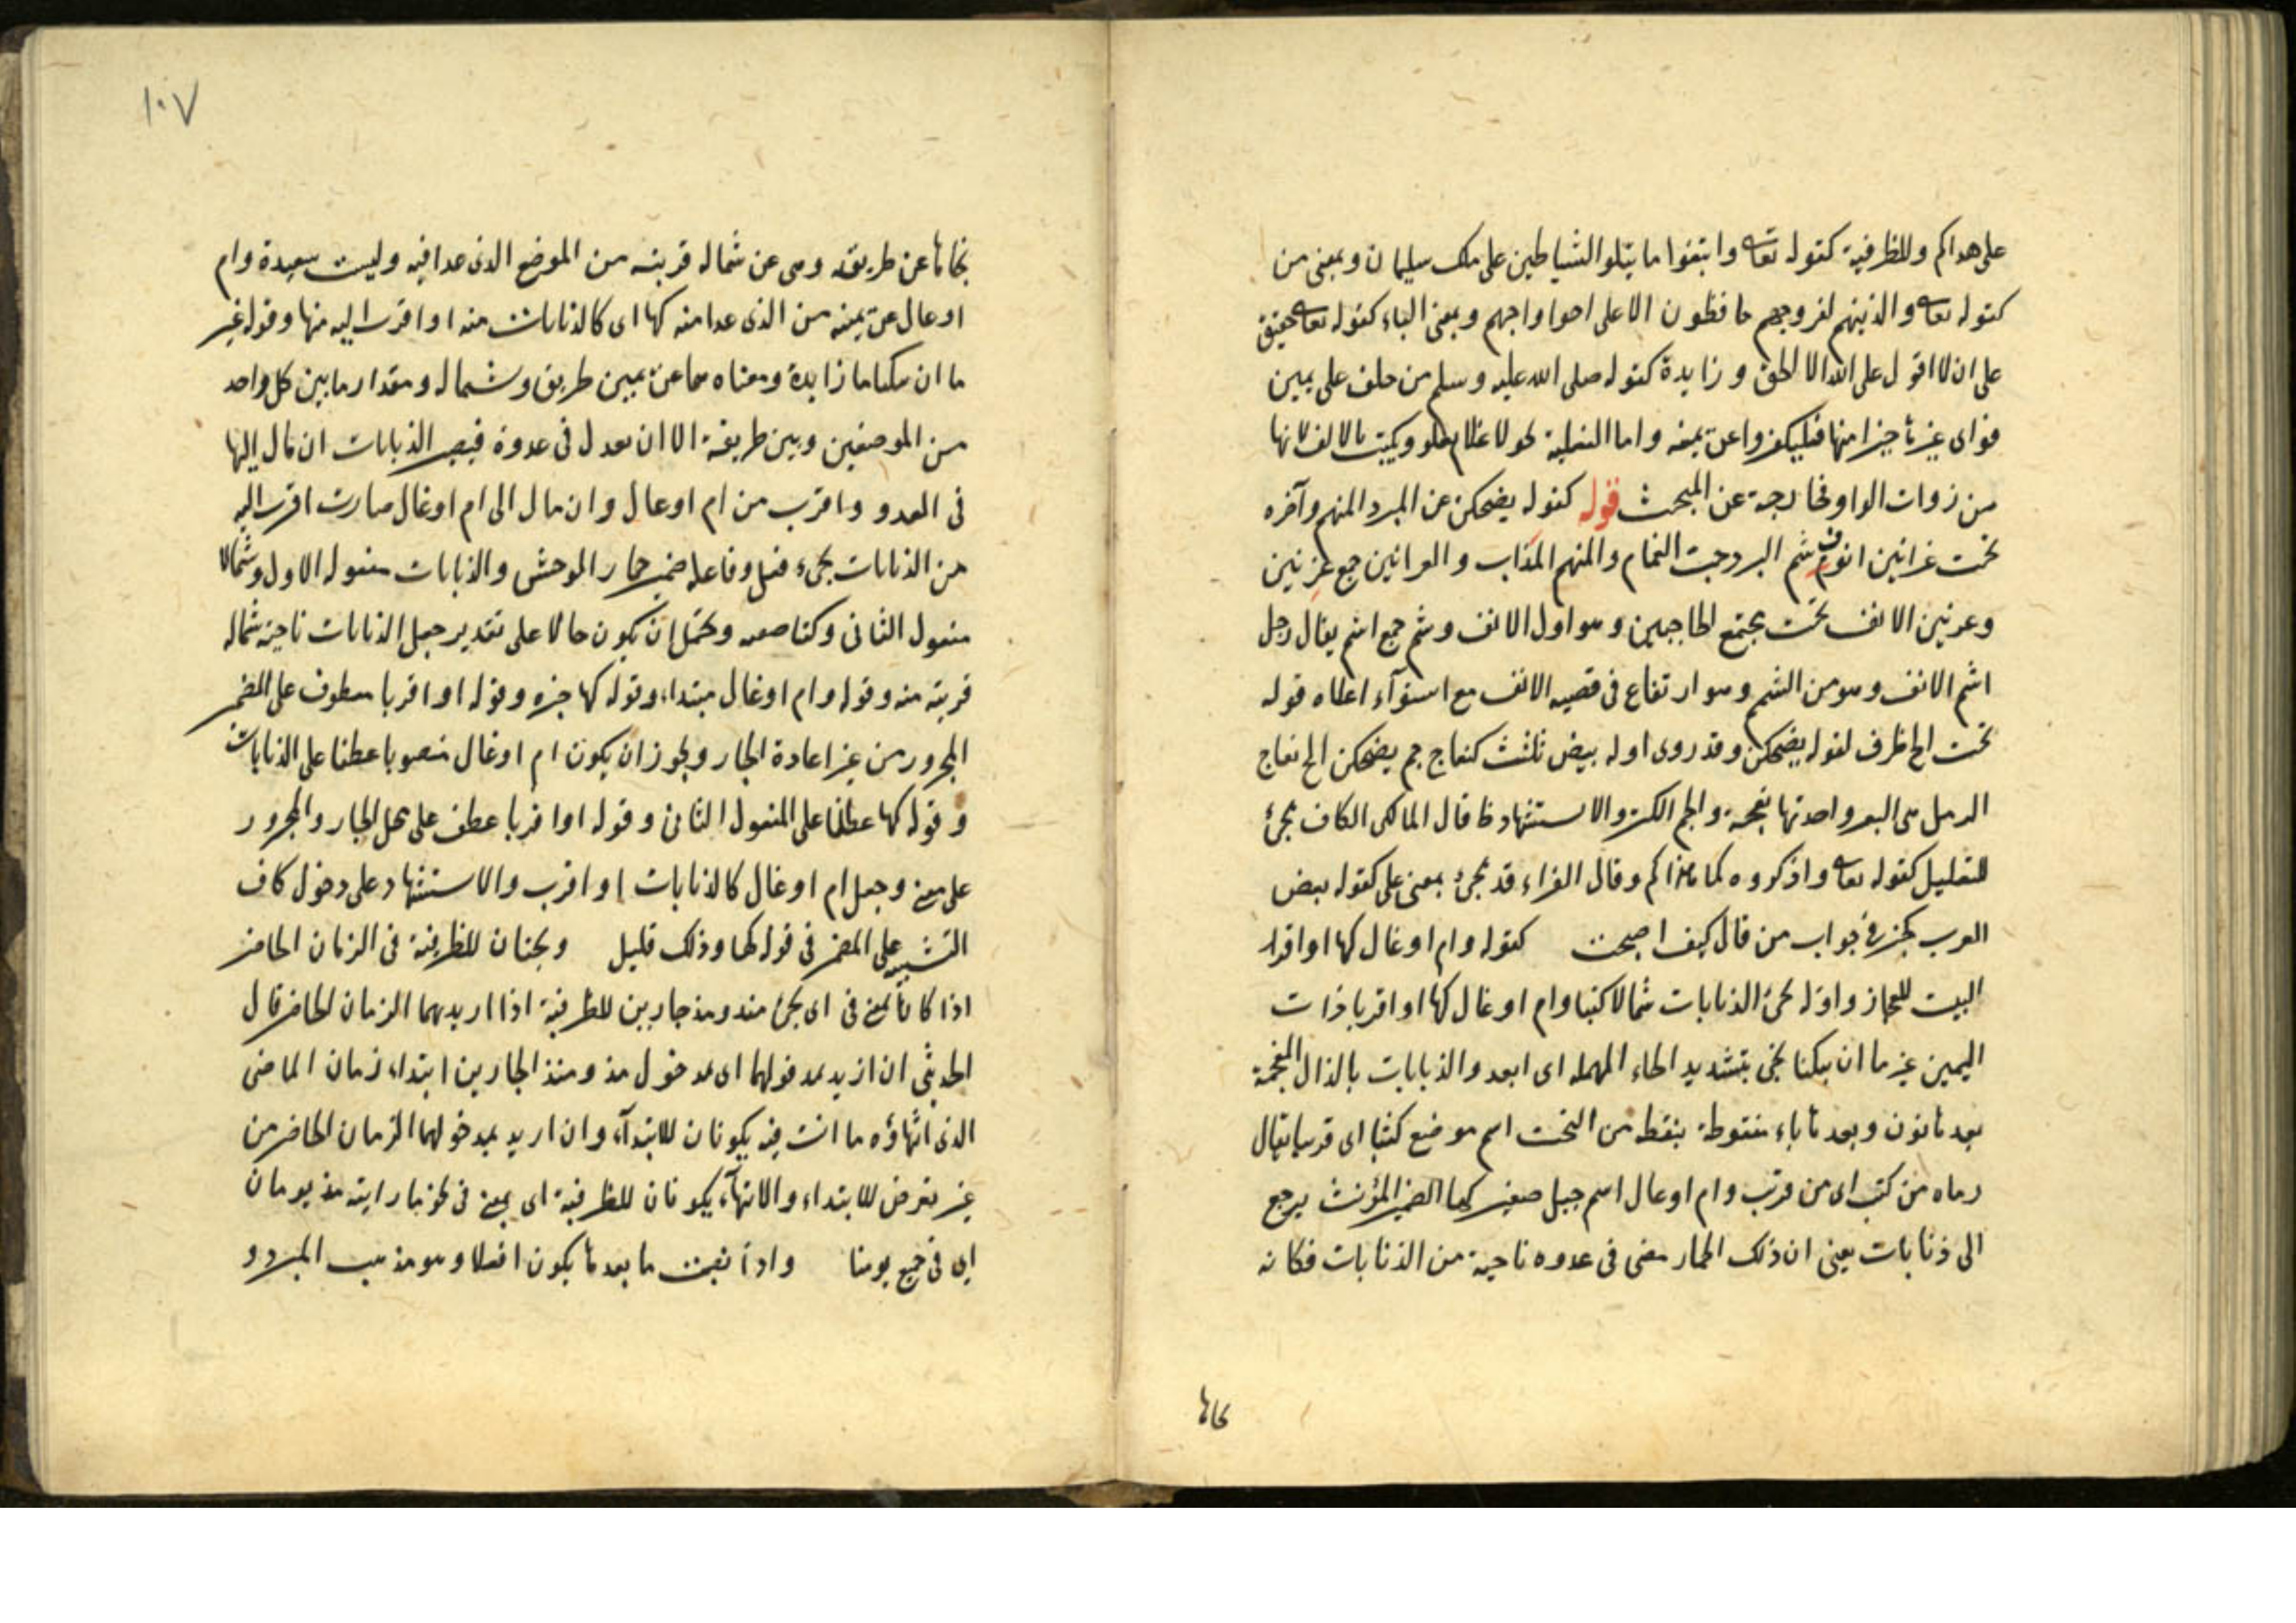 على هداكم وللظرفية كقوله تعا واتبعوا ما يتلو الشياطين على ملك سليمان وبمعنى من
كقوله تعا والذينهم لفروجهم حافظون الا على ازواجهم وبمعنى الباء كقوله تعا حقيق
على ان لا اقول على الله الا الحق وزايدة كقوله صلى الله عليه وسلم من حلف على يمين
فراى غيرها خيرا منها فليكفر عن يمينه واما الفعلية يعلو ويكتب بالالف لانها
من ذوات الواو فخارجة عن المبحث قوله كقوله يضحكن عن البرد المنهم وآخره
تحت عرانين انوف شم البرد حب الغمام والمنهم المذاب والعرانين جمع عرنين
وعرنين الانف تحت مجتمع الحاجبين وهو اول الانف وشم جمع اشم يقال رجل
اشم الانف وهو من الشمم وهو ارتفاع في قصبة الانف مع استوآء اعلاه قوله
تحت الخ ظرف لقوله يضحكن وقد روى اوله بيض ثلث كنعاج جم يضحكن الخ نعاج
الرمل هى البقر واحدتها نعجة والجم الكثر والاستشهاد ظ قال المالكى الكاف تجئ
للتعليل كقوله تعا واذكروه كما هداكم وقال الفراء قد تجئ بمعنى على كقوله بعض
العرب كخير في جواب من قال كيف اصبحت كقوله وام اوعال كها او اقربا
البيت للعجاج واوله نحى الذنابات شمالا كثبا وام اوعال كها او اقربا ذات
اليمين غير ما ان ينكبا نحى بتشديد الحاء المهملة اى ابعد والذنابات بالذال المعجمة
بعدها نون وبعدها باء منقوطة بنقطة من التحت اسم موضع كثبا اى قربا يقال
رماه من كثب اى من قرب وام اوعال اسم جبل صغير كها الضمير المؤنث يرجع
الى ذنابات يعنى ان ذلك الحمار مضى في عدوه ناحية من الذنابات فكانه
نحاها
١٠٧
نحاها عن طريقه وهى عن شماله قريبة من الموضع الذى عدا فيه وليست ببعيدة وام
اوعال عن يمينه من الذى عدا منه كها اى كالذنابات منه او اقرب اليه منها وقوله غير
ما ان ينكبا ما زايدة ومعناه هما عن يمين طريق وشماله ومقدار ما بين كل واحد
من الموضعين وبين طريقه الا ان يعدل في عدوه فيصير الذنابات ان مال اليها
في العدو واقرب من ام اوعال وان مال الى ام اوعال صارت اقرب اليه
من الذنابات نحى فعل وفاعله ضمير حمار الوحش والذنابات مفعوله الاول وشمالا
مفعول الثانى وكثبا صفته ويحتمل ان يكون حالا على تقدير جعل الذنابات ناحية شماله
قريبة منه وقوله وام اوعال مبتداء وقوله كها خبره وقوله او اقربا معطوف على الضمير
المجرور من غير اعادة الجار ويجوز ان يكون ام اوعال منصوبا عطفا على الذنابات
وقوله كها عطفا على المفعول الثانى وقوله او اقربا عطف على محل الجار والمجرور
على معنى وجعل ام اوعال كالذنابات او اقرب والاستشهاد على دخول كاف
التشبيه على المضمر في قوله كها وذلك قليل ويجئان للظرفية في الزمان الحاضر
اذا كانا بمعنى في اى يجئ منذ ومذ جارين للظرفية اذا اريد بهما الزمان الحاضر قال
الحديثى ان اريد بمدخولهما اى مدخول مذ ومنذ الجارين ابتداء زمان الماضى
الذى انتهاؤه ما انت فيه يكونان للابتدآء وان اريد بمدخولهما الزمان الحاضر من
غير تعرض للابتداء والانتهآء يكونان للظرفية اى بمعنى في نحو ما رايته مذ يومان
اى في جميع يومنا واذا نصبت ما بعدها يكون افعلا وهو مذهب المبرد و